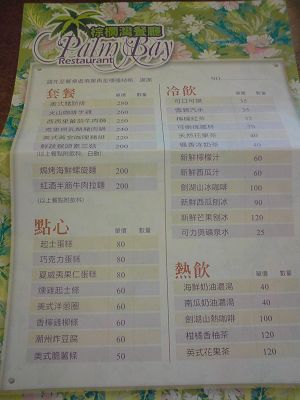 棕櫚灣餐廳
Palm Bay
Restaurant
NO.
套餐 單價 數量
泰式豬肋排 280
火山咖啡牛雞 260
西西里紅酒牛肉麵 220
240
200
200
(以上餐點附飲料、白飯)
焗烤海鮮螺旋麵 200
紅酒半筋牛肉拉麵 200
(以上餐點附飲料)
點心 單價 數量
起士蛋糕 80
巧克力蛋糕 80
夏威夷果仁蛋糕 80
燻雞起士條 60
美式洋蔥圈 60
香檸雞柳條 60
潮州炸豆腐 60
美式脆薯條 50
冷飲 單價 數量
可口可樂 35
雪碧汽水 35
檸檬紅茶 32
可爾桃麗絲 70
天然花果茶
40
新鮮檸檬汁 60
新鮮西瓜汁 60
劍湖山冰咖啡 100
新鮮西瓜刨冰 90
新鮮芒果刨冰 120
可力奧礦泉水 25
熱飲 單價 數量
海鮮奶油濃湯 40
南瓜奶油濃湯 40
劍湖山熱咖啡 100
柑橘香柚茶 120
英式花果茶 120